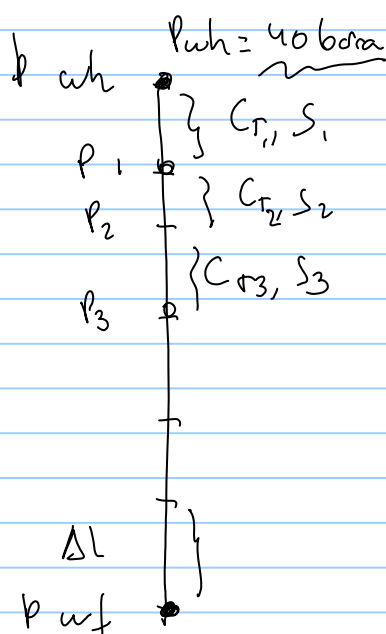 Pwh = 40 bara
p wh
} C_T1, S_1
P_1
} C_T2, S_2
P_2
} C_T3, S_3
P_3
ΔL }
p wf